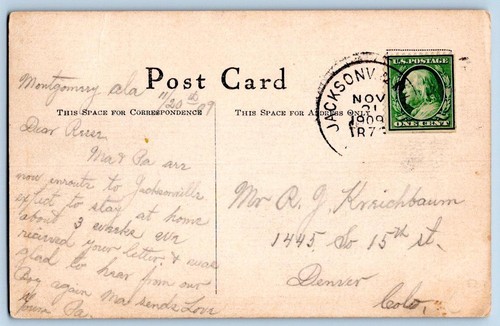 Montgomery Ala
11/20th 09
Post Card
THIS SPACE FOR CORRESPONDENCE
THIS SPACE FOR ADDRESS ONLY
Dear
Ma & Pa are
now enroute to Jacksonville
expect to stay at home
about 3 weeks We
recieved your letter & was
glad to hear from our
Boy again Ma sends Love
Yours Pa.
Mr R. J. Kreichbaum
1445 So 15th st.
Denver
Colo,
JACKSONV
NOV
21
1909
U.S. POSTAGE
ONE CENT